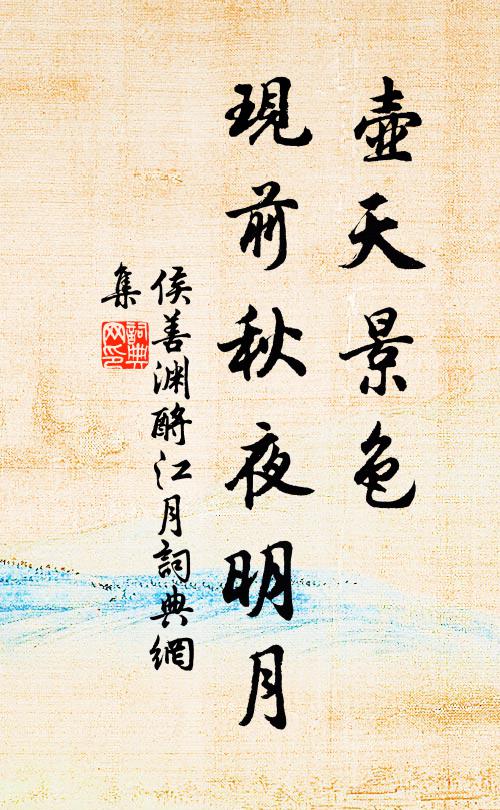 壺天景色
現前秋夜明月
侯善渊酹江月詞典網
集
詞典
网印